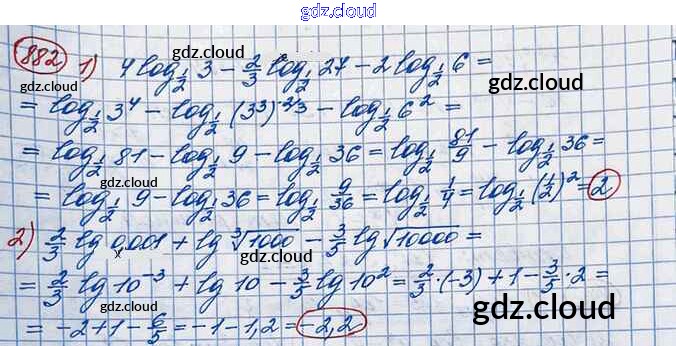 gdz.cloud
gdz.cloud
882 1) 4 log_{1/2} 3 - 2/3 log_{1/2} 27 - 2 log_{1/2} 6 =
gdz.cloud gdz.cloud gdz.cloud
= log_{1/2} 3^4 - log_{1/2} (3^3)^{2/3} - log_{1/2} 6^2 =
gdz.cloud gdz.cloud
= log_{1/2} 81 - log_{1/2} 9 - log_{1/2} 36 = log_{1/2} 81/9 - log_{1/2} 36 =
gdz.cloud gdz.cloud
= log_{1/2} 9 - log_{1/2} 36 = log_{1/2} 9/36 = log_{1/2} 1/4 = log_{1/2} (1/2)^2 = 2
gdz.cloud
2) 2/3 lg 0,001 + lg ∛1000 - 3/5 lg √10000 =
gdz.cloud gdz.cloud
= 2/3 lg 10^{-3} + lg 10 - 3/5 lg 10^2 = 2/3 · (-3) + 1 - 3/5 · 2 =
gdz.cloud gdz.cloud
= -2 + 1 - 6/5 = -1 - 1,2 = -2,2
gdz.cloud